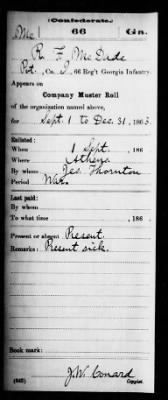 (Confederate.)
Mc 66 Ga.
R. F. McDade
Pvt., Co. I, 66 Reg't Georgia Infantry.
Appears on
Company Muster Roll
of the organization named above,
for Sept. 1 to Dec. 31, 1863.
Enlisted:
When 1 Sept., 186
Where Athens
By whom Jas. Thornton
Period War
Last paid:
By whom
To what time , 186
Present or absent Present.
Remarks: Present sick.
Book mark:
J.W. Conard
(642) Copyist.